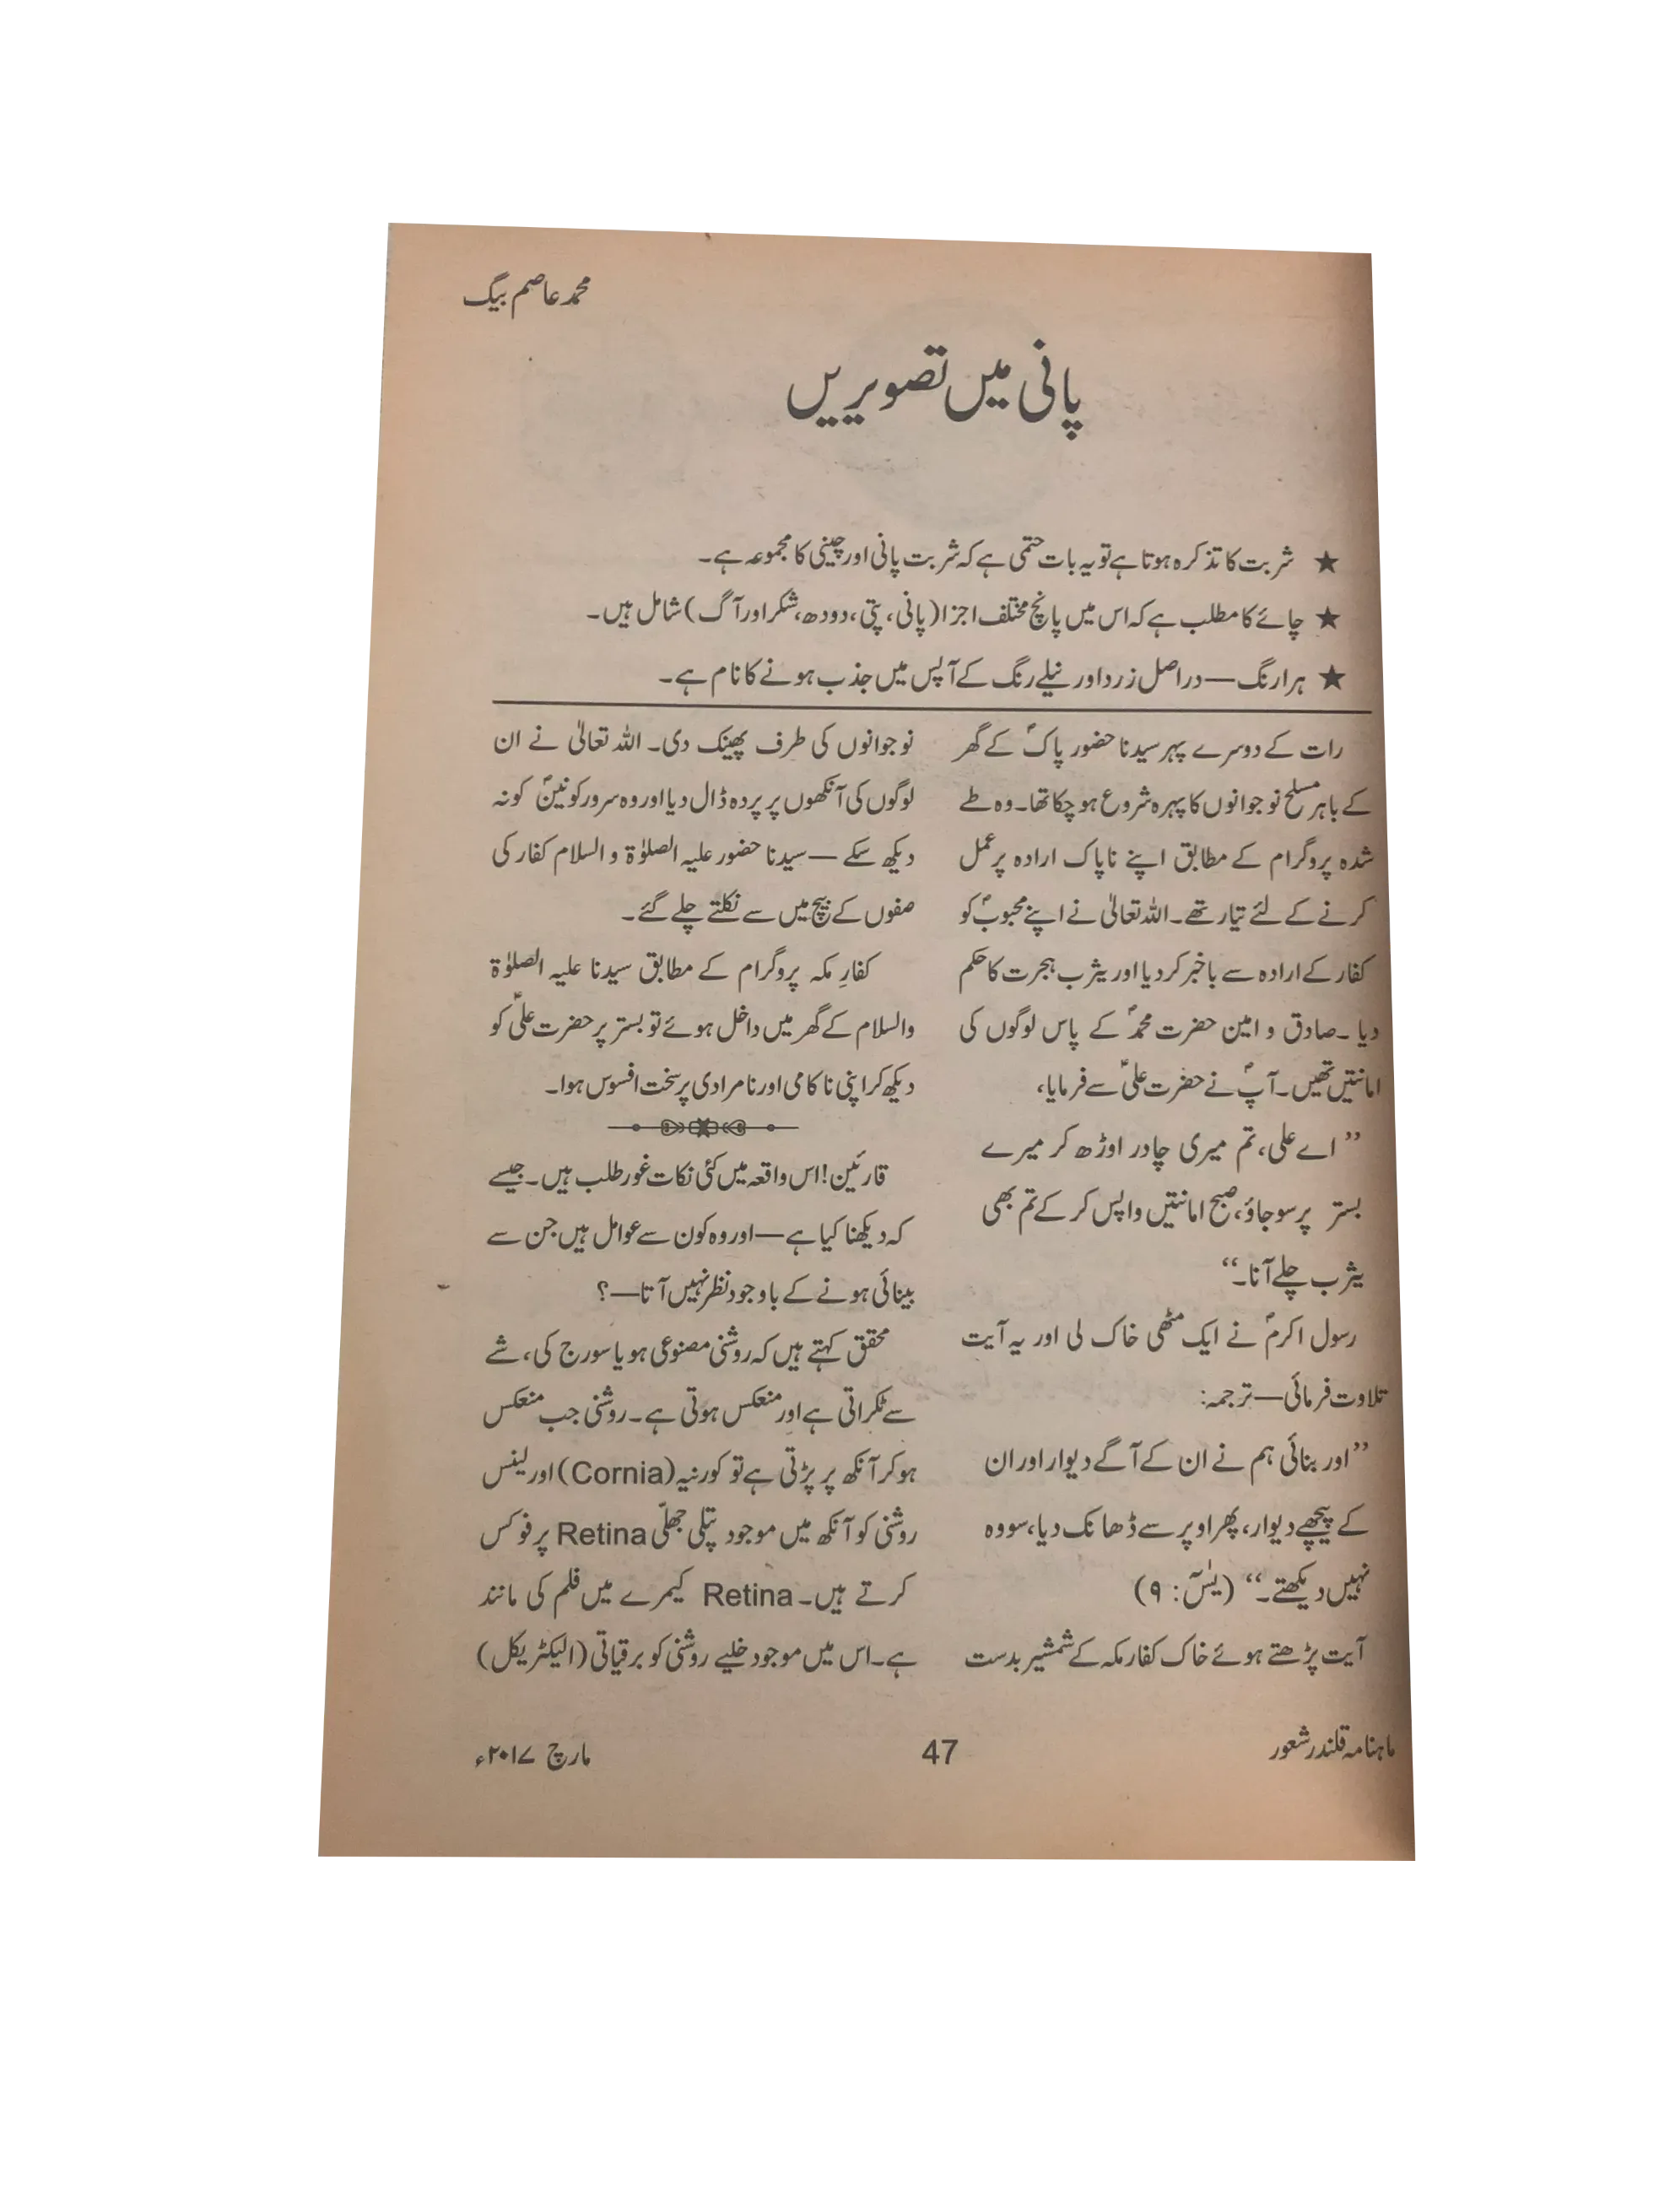 محمد عاصم بیگ
پانی میں تصویریں
★ شربت کا تذکرہ ہوتا ہے تو یہ بات حتمی ہے کہ شربت پانی اور چینی کا مجموعہ ہے۔
★ چائے کا مطلب ہے کہ اس میں پانچ مختلف اجزا (پانی، پتی، دودھ، شکر اور آگ) شامل ہیں۔
★ ہرا رنگ — دراصل زرد اور نیلے رنگ کے آپس میں جذب ہونے کا نام ہے۔
رات کے دوسرے پہر سیدنا حضور پاکؐ کے گھر
کے باہر مسلح نوجوانوں کا پہرہ شروع ہو چکا تھا۔ وہ طے
شدہ پروگرام کے مطابق اپنے ناپاک ارادہ پر عمل
کرنے کے لئے تیار تھے۔ اللہ تعالیٰ نے اپنے محبوبؐ کو
کفار کے ارادہ سے باخبر کر دیا اور یثرب ہجرت کا حکم
دیا۔ صادق و امین حضرت محمدؐ کے پاس لوگوں کی
امانتیں تھیں۔ آپؐ نے حضرت علیؓ سے فرمایا،
”اے علی، تم میری چادر اوڑھ کر میرے
بستر پر سو جاؤ، صبح امانتیں واپس کر کے تم بھی
یثرب چلے آنا۔“
رسول اکرمؐ نے ایک مٹھی خاک لی اور یہ آیت
تلاوت فرمائی — ترجمہ:
”اور بنائی ہم نے ان کے آگے دیوار اور ان
کے پیچھے دیوار، پھر اوپر سے ڈھانک دیا، سو وہ
نہیں دیکھتے۔“ (یٰسٓ : ۹)
آیت پڑھتے ہوئے خاک کفار مکہ کے شمشیر بدست
نوجوانوں کی طرف پھینک دی۔ اللہ تعالیٰ نے ان
لوگوں کی آنکھوں پر پردہ ڈال دیا اور وہ سرور کونینؐ کو نہ
دیکھ سکے — سیدنا حضور علیہ الصلوٰۃ و السلام کفار کی
صفوں کے بیچ میں سے نکلتے چلے گئے۔
کفارِ مکہ پروگرام کے مطابق سیدنا علیہ الصلوٰۃ
والسلام کے گھر میں داخل ہوئے تو بستر پر حضرت علیؓ کو
دیکھ کر اپنی ناکامی اور نامرادی پر سخت افسوس ہوا۔
قارئین! اس واقعہ میں کئی نکات غور طلب ہیں۔ جیسے
کہ دیکھنا کیا ہے — اور وہ کون سے عوامل ہیں جن سے
بینائی ہونے کے باوجود نظر نہیں آتا —؟
محقق کہتے ہیں کہ روشنی مصنوعی ہو یا سورج کی، شے
سے ٹکراتی ہے اور منعکس ہوتی ہے۔ روشنی جب منعکس
ہو کر آنکھ پر پڑتی ہے تو کورنیہ (Cornia) اور لینس
روشنی کو آنکھ میں موجود پتلی جھلّی Retina پر فوکس
کرتے ہیں۔ Retina کیمرے میں فلم کی مانند
ہے۔ اس میں موجود خلیے روشنی کو برقیاتی (الیکٹریکل)
ماہنامہ قلندر شعور
47
مارچ ۲۰۱۷ء